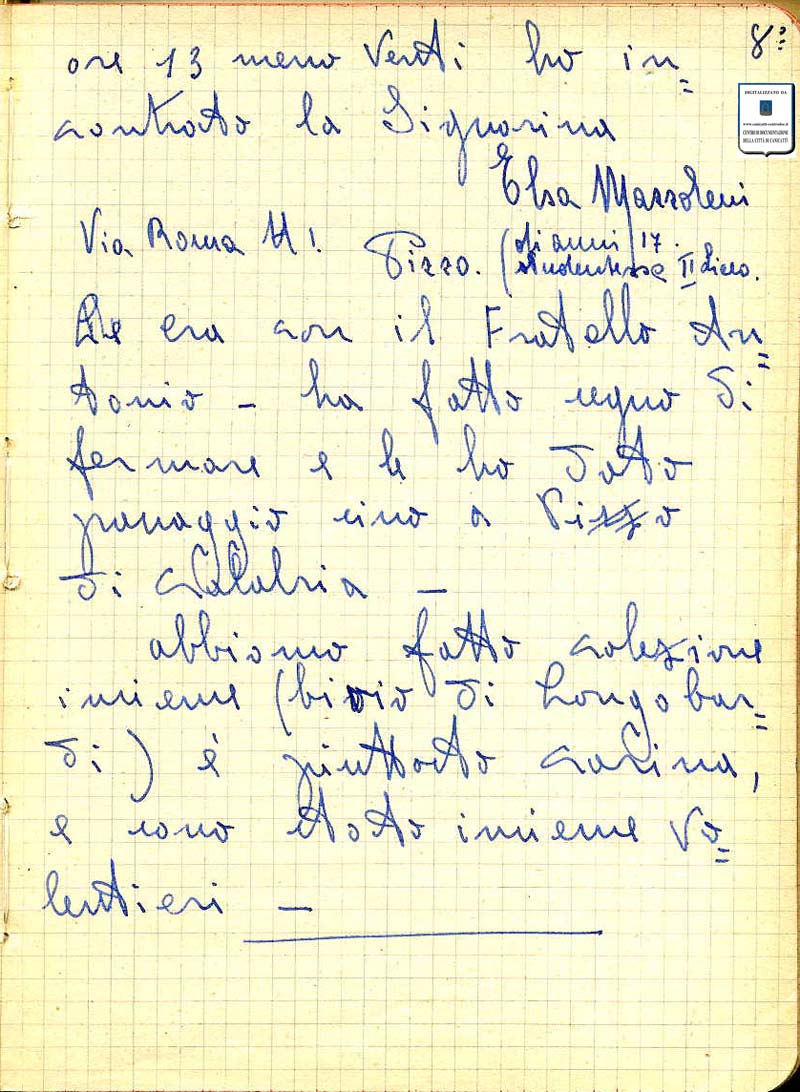 8°
DIGITALIZZATO DA
CENTRO DI DOCUMENTAZIONE
DELLA CITTÀ DI CANICATTÌ
ore 13 meno Venti ho in=
contrato la Signorina
Elsa Mazzoleni
Via Roma
Pizzo. (di anni 17.
studentessa II Liceo.
era con il Fratello An=
tonio - ha fatto segno di
fermare e le ho dato
passaggio sino a Pizzo
di Calabria -
abbiamo fatto colezione
insieme (bivio di Longobar=
di) è piuttosto carina,
e sono stato insieme Vo=
lentieri -